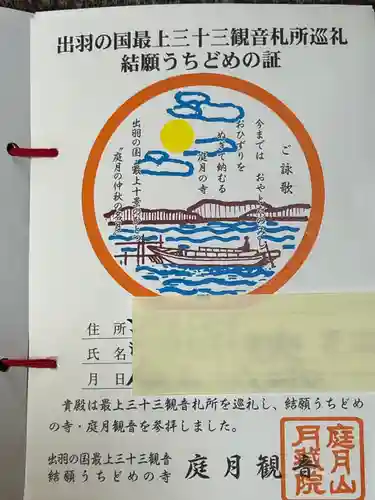 出羽の国最上三十三観音札所巡礼
結願うちどめの証
ご詠歌
今までは おやと
おひずりを
ぬぎて納むる
庭月の寺
出羽の国 最上十景
"庭月の仲秋の名月"
住所
氏名
月日
貴殿は最上三十三観音札所を巡礼し、結願うちどめ
の寺・庭月観音を参拝しました。
出羽の国最上三十三観音
結願うちどめの寺
庭月観音
庭月山
月蔵院